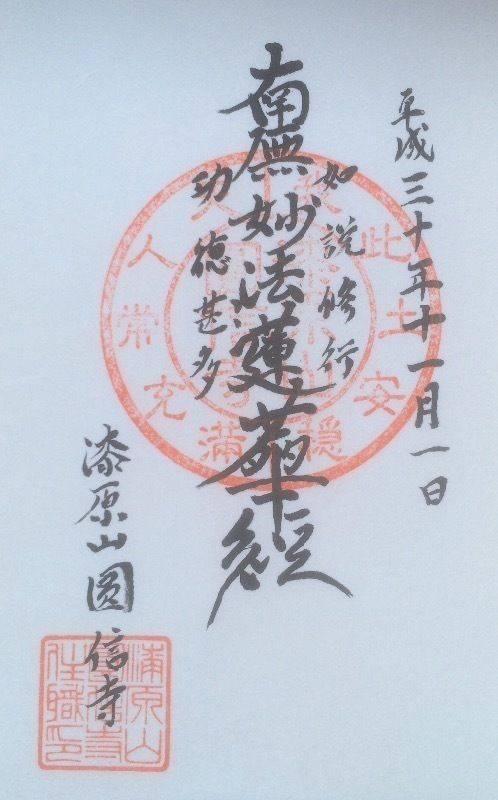 平成三十年十一月一日
如説修行
南無妙法蓮華経
功徳甚多
漆原山圓信寺
我此土安穏天人常充満
住職印